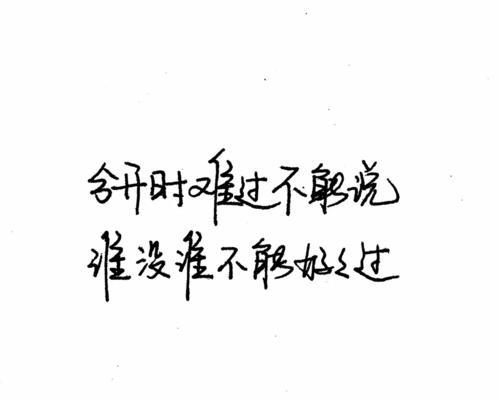 分开时难过不能说
谁没谁不能好好过